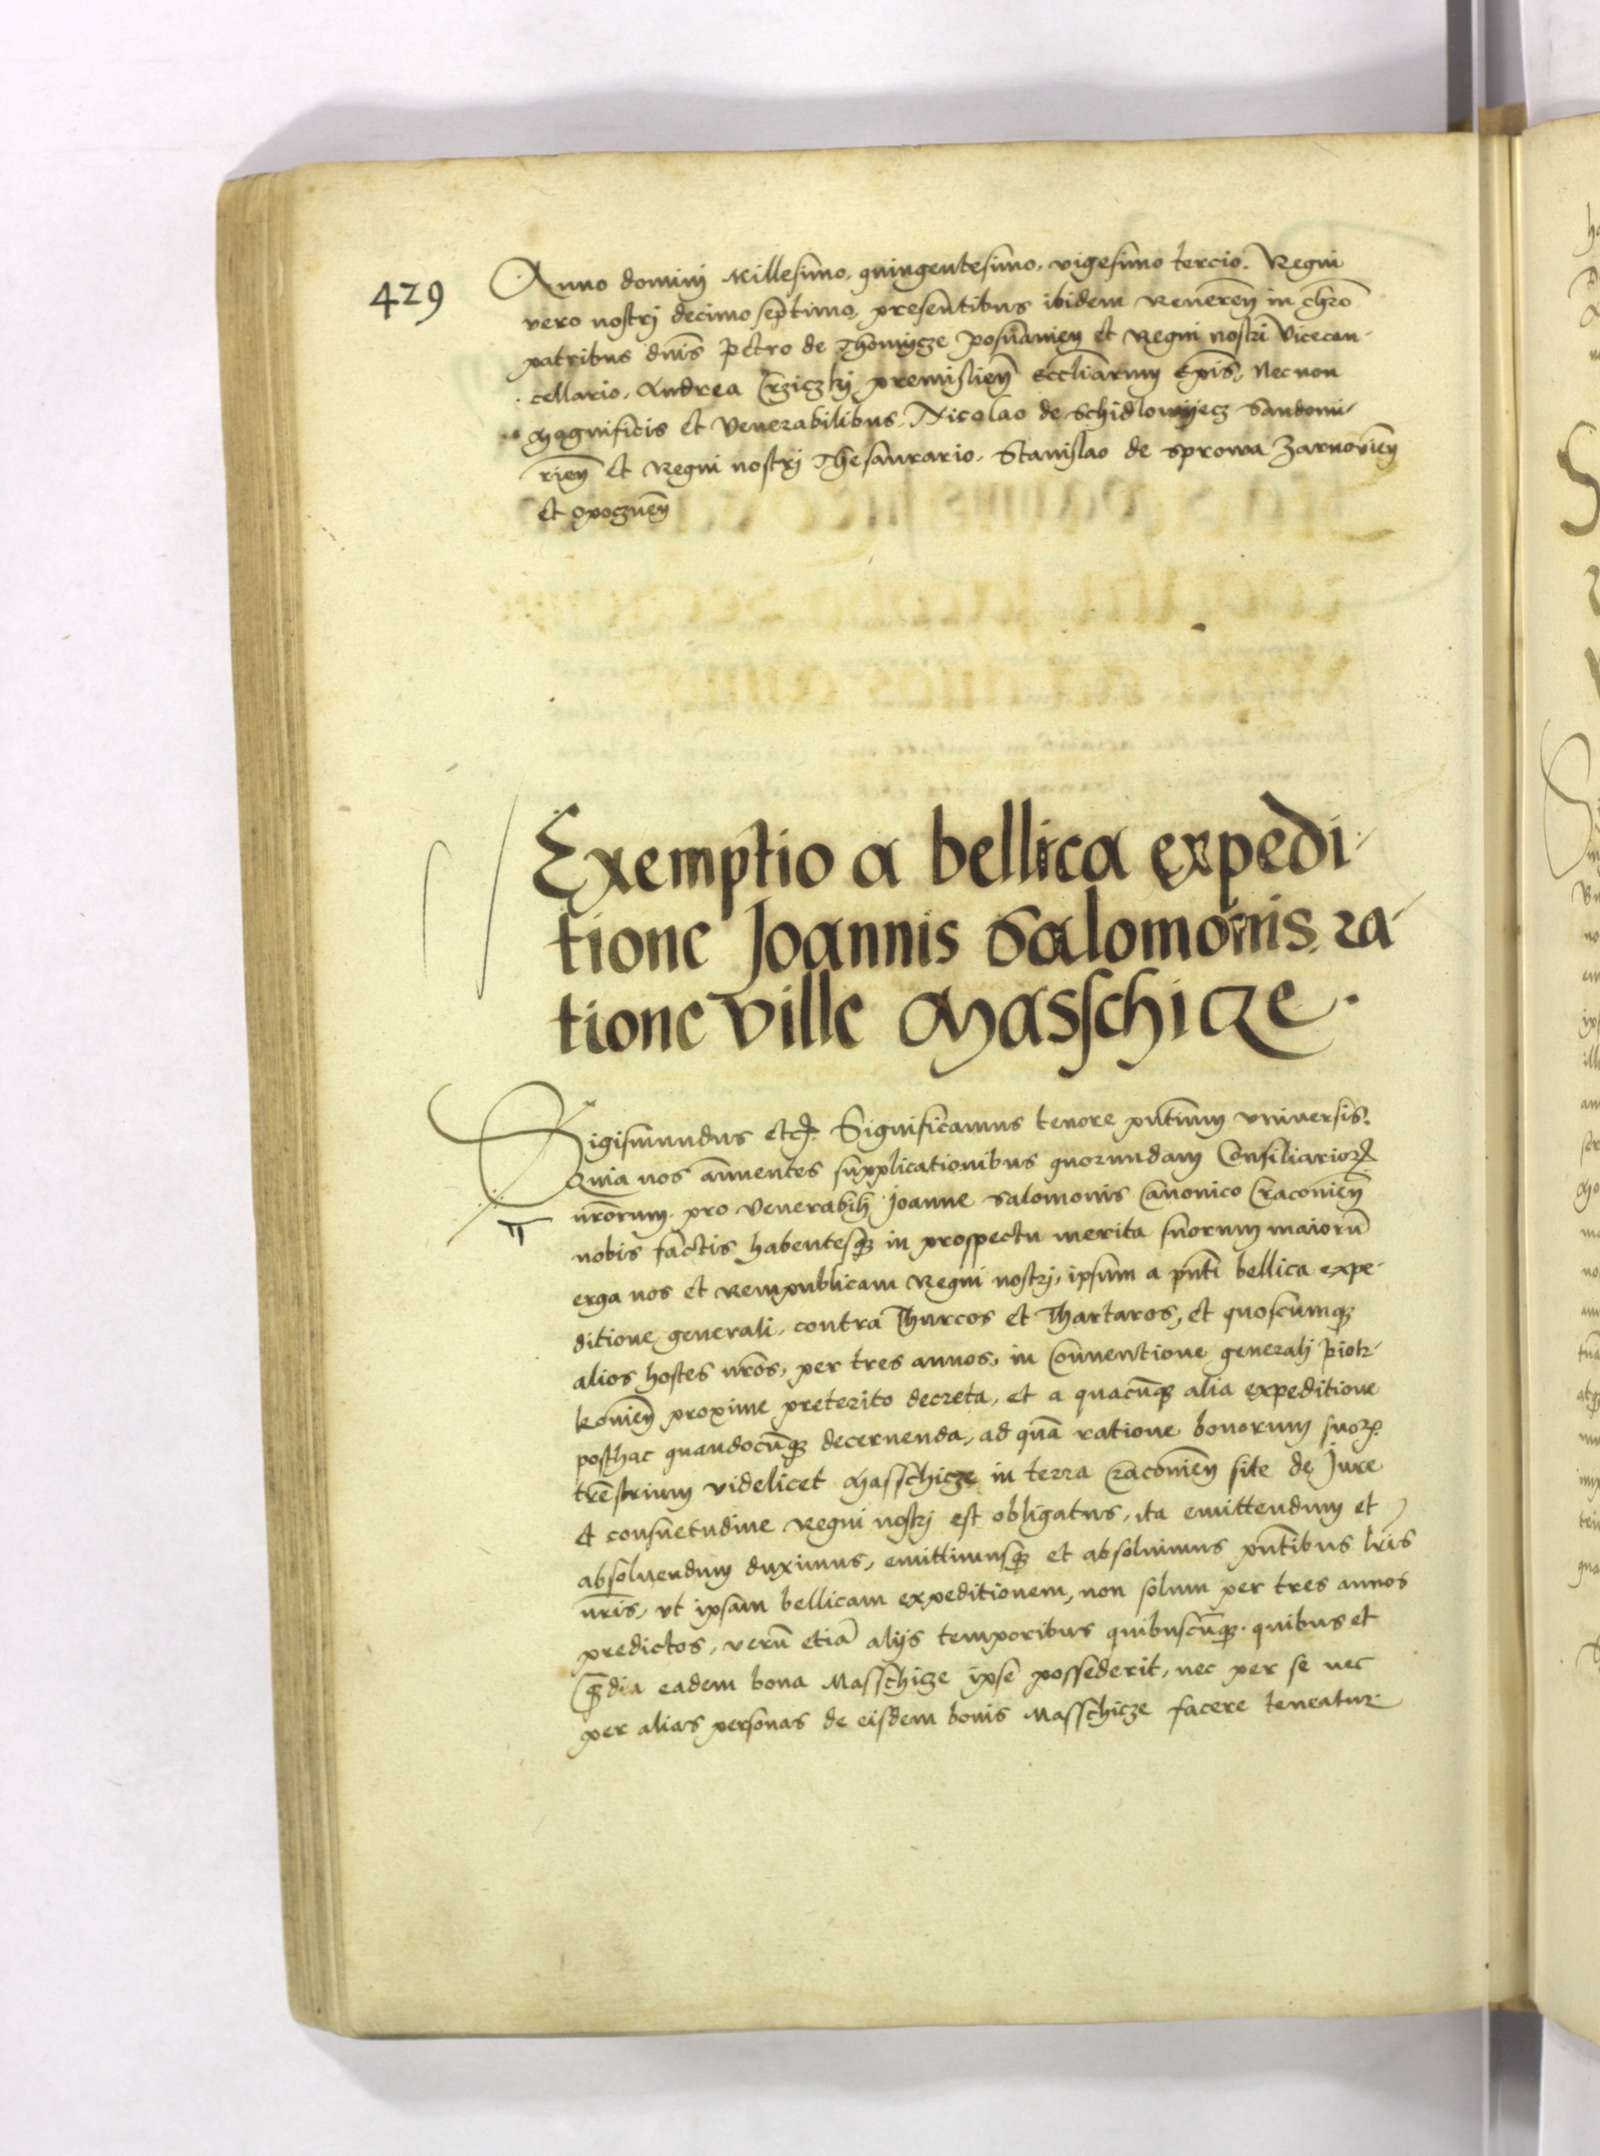 429
Anno dominj Millesimo, quingentesimo, vigesimo tercio. Regni
vero nostrj decimo septimo, presentibus ibidem Reuereñ in chrõ
patribus dñis Petro de Thomycze Posnanieñ et Regni nostri Vicecan-
cellario, Andrea Crziczkj premislieñ Eccliarum Epis, Necnon
Magnificis et Venerabilibus, Nicolao de Schidlowyecz Sandomi-
rieñ et Regni nostrj Thesaurario, Stanislao de Sprowa Zarnovieñ
et Opoczneñ
Exemptio a bellica expedi-
tione Joannis Salomonis ra-
tione ville Masschicze.
Sigismundus etc. Significamus tenore pñtium vniuersis.
Quia nos annuentes supplicationibus quorundam Consiliarior
nrorum, pro Venerabilj Joanne Salomonis Canonico Cracovieñ
nobis factis habentesq in prospectu merita suorum maiorũ
erga nos et Rempublicam Regni nostrj, ipsum a pñti bellica expe-
ditione generali, contra Thurcos et Thartaros, et quoscumq
alios hostes nros, per tres annos, in Conuentione generalj Piotr-
kovieñ proxime preterito decreta, et a quacũq alia expeditione
posthac quandocũq decernenda, ad quã ratione bonorum suor
trẽstrium videlicet Masschicze in terra Cracovieñ site de Jure
et consuetudine Regni nostrj est obligatus, ita emittendum et
absoluendum duximus, emittimusq et absoluimus pñtibus lris
nris, vt ipsam bellicam expeditionem, non solum per tres annos
predictos, verũ etiã alijs temporibus quibuscũq, quibus et
q̃dia eadem bona Masschicze ipse possederit, nec per se nec
per alias personas de eisdem bonis Masschicze facere teneatur